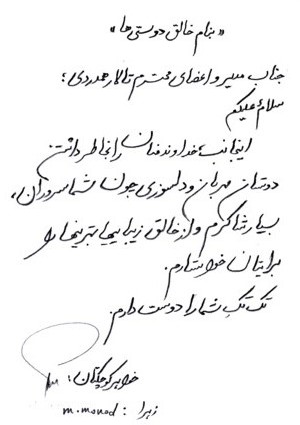 «بنام خالق دوستی ها»
جناب مدیر و اعضای محترم تالار همدردی؛
سلام علیکم
اینجانب خداوند منان را بخاطر داشتن
دوستان مهربان و دلسوزی چون شما سروران،
بسیار شاکرم و از خالق زیباییها بهترینها را
برایتان خواستارم.
تک تک شما را دوست دارم.
خواهر کوچکتان:
زهرا : m.monad